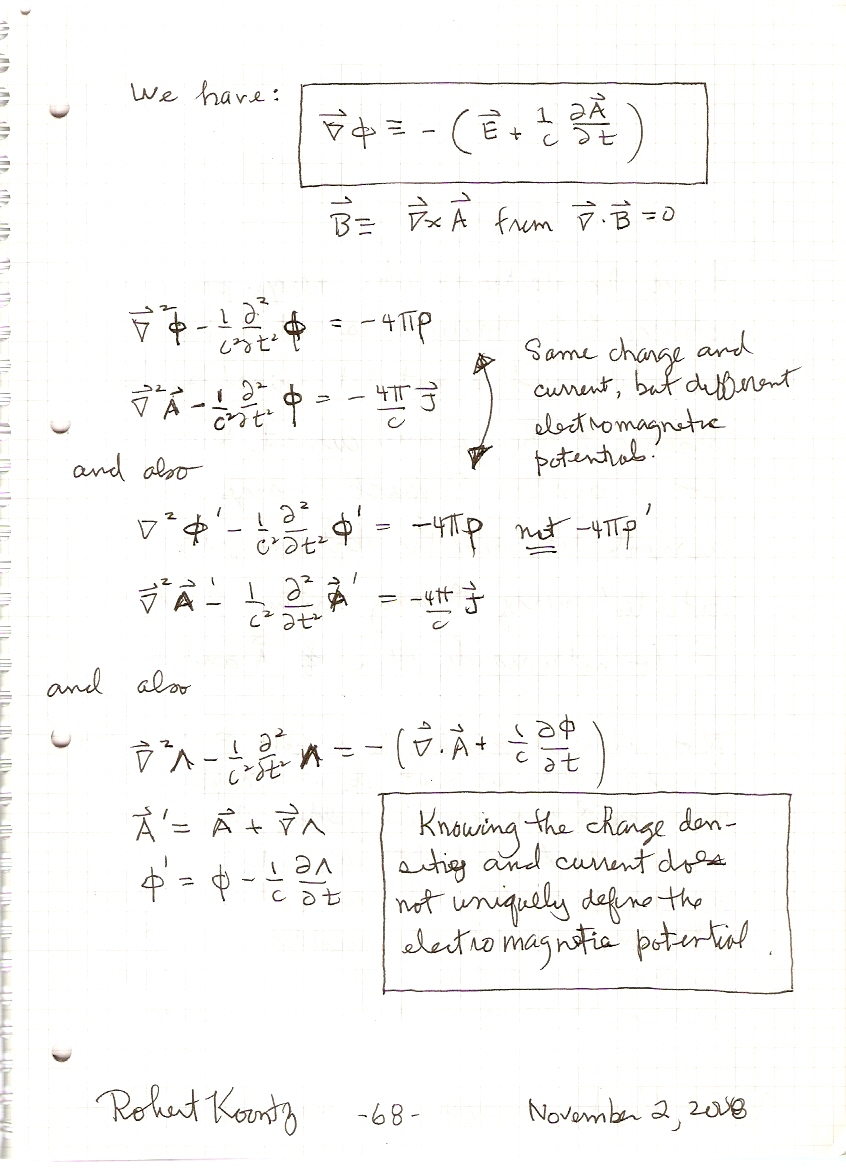 We have:
∇⃗ϕ ≡ - ( E⃗ + 1/c ∂A⃗/∂t )
B⃗ ≡ ∇⃗× A⃗ from ∇⃗·B⃗ = 0
∇⃗²ϕ - 1/c² ∂²/∂t² ϕ = -4πρ
Same charge and
current, but different
electromagnetic
potentials.
∇⃗²A⃗ - 1/c² ∂²/∂t² ϕ = - 4π/c J⃗
and also
∇²ϕ' - 1/c² ∂²/∂t² ϕ' = -4πρ not -4πρ'
∇⃗²A⃗' - 1/c² ∂²/∂t² A⃗' = -4π/c J⃗
and also
∇⃗²Λ - 1/c² ∂²/∂t² Λ = - ( ∇⃗·A⃗ + 1/c ∂ϕ/∂t )
A⃗' = A⃗ + ∇⃗Λ
ϕ' = ϕ - 1/c ∂Λ/∂t
Knowing the charge den-
sities and current does
not uniquely define the
electromagnetic potential.
Robert Koontz -68- November 2, 2008